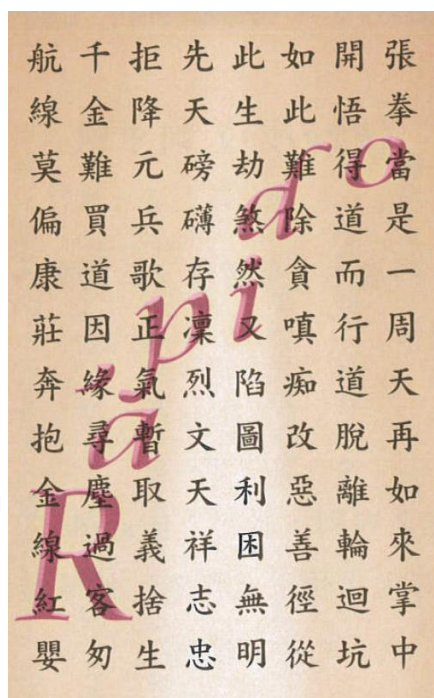 張拳當是一周天再如來掌中
開悟得道而行道脫離輪迴坑
如此難除貪嗔痴改惡善徑從
此生劫煞然又陷圖利困無明
先天磅礴存凜烈文天祥志忠
拒降元兵歌正氣暫取義捨生
千金難買道因緣尋塵過客匆
航線莫偏康莊奔抱金線紅嬰
Rapido